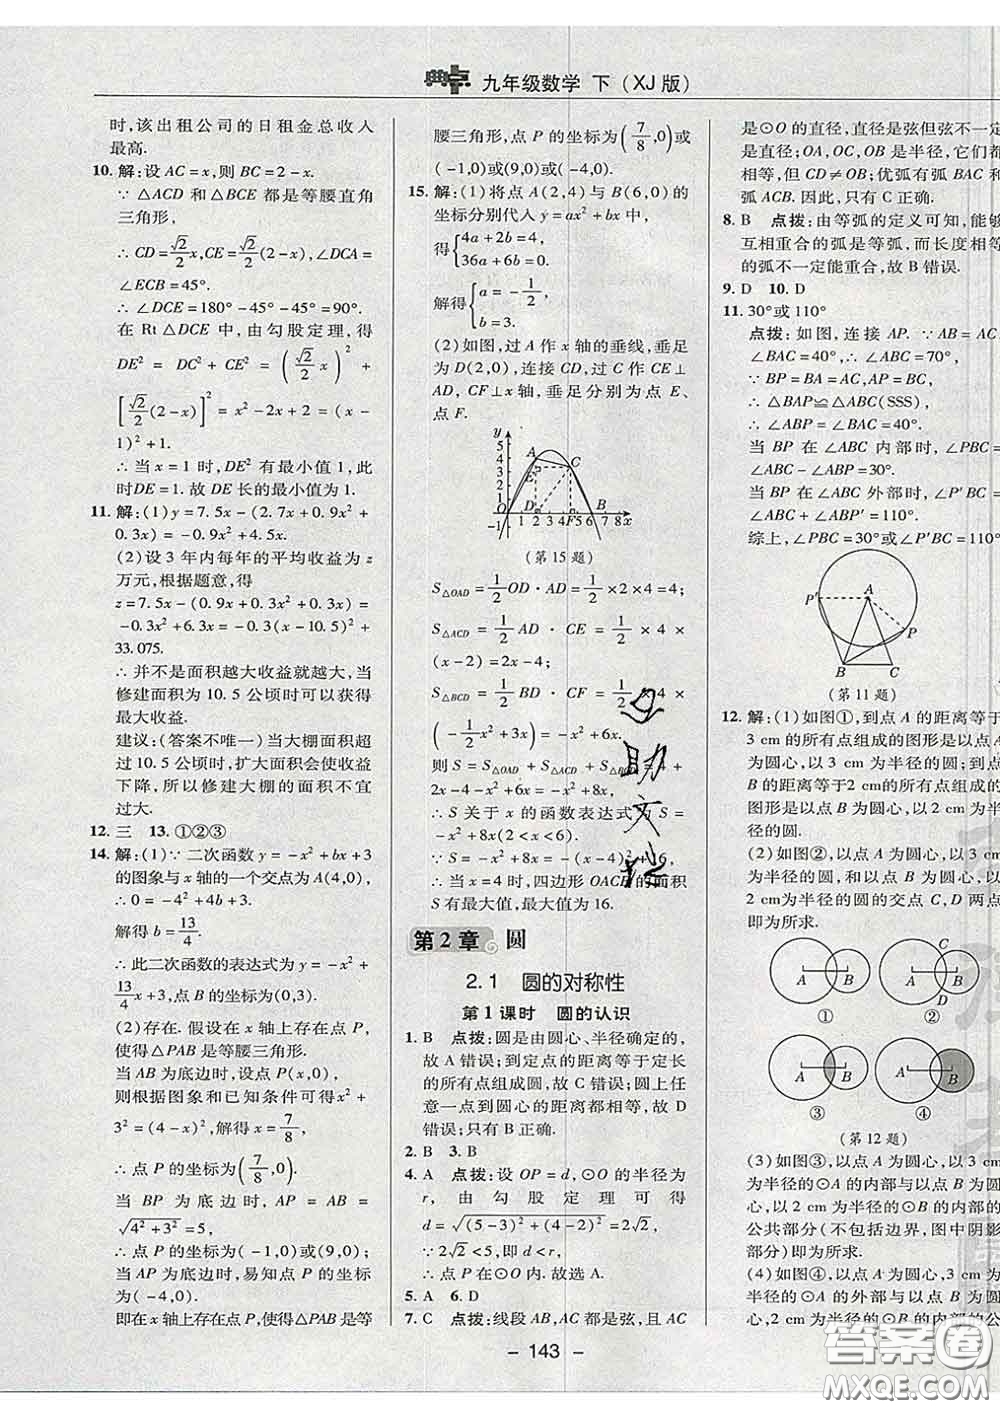 典点 九年级数学 下(XJ版)
时,该出租公司的日租金总收入
最高.
10. 解:设 AC=x,则 BC=2-x.
∵△ACD 和△BCE 都是等腰直角
三角形,
∴CD=√2/2 x,CE=√2/2(2-x),∠DCA=
∠ECB=45°.
∴∠DCE=180°-45°-45°=90°.
在 Rt△DCE 中,由勾股定理,得
DE²=DC²+CE²=(√2/2 x)²+
[√2/2(2-x)]²=x²-2x+2=(x-
1)²+1.
∴当 x=1 时,DE²有最小值1,此
时DE=1.故 DE 长的最小值为1.
11. 解:(1)y=7.5x-(2.7x+0.9x²+
0.3x)=-0.9x²+4.5x.
(2)设 3 年内每年的平均收益为 z
万元,根据题意,得
z=7.5x-(0.9x+0.3x²+0.3x)=
-0.3x²+6.3x=-0.3(x-10.5)²+
33.075.
∴并不是面积越大收益就越大,当
修建面积为 10.5 公顷时可以获得
最大收益.
建议:(答案不唯一)当大棚面积超
过 10.5 公顷时,扩大面积会使收益
下降,所以修建大棚的面积不宜
过大.
12. 三 13. ①②③
14. 解:(1)∵二次函数 y=-x²+bx+3
的图象与 x 轴的一个交点为 A(4,0),
∴0=-4²+4b+3.
解得 b=13/4.
∴此二次函数的表达式为 y=-x²+
13/4 x+3,点 B 的坐标为(0,3).
(2)存在.在 x 轴上存在点 P,
使得△PAB 是等腰三角形.
当 AB 为底边时,设点 P(x,0),
则根据图象和已知条件可得 x²+
3²=(4-x)²,解得 x=7/8,
∴点 P 的坐标为(7/8,0);
当 BP 为底边时,AP=AB=
√(4²+3²)=5,
∴点 P 的坐标为(-1,0)或(9,0);
当 AP 为底边时,易知点 P 的坐标
为(-4,0).
即在 x 轴上存在点 P,使得△PAB是等
腰三角形,点 P 的坐标为(7/8,0)或
(-1,0)或(9,0)或(-4,0).
15. 解:(1)将点 A(2,4)与 B(6,0)的
坐标分别代入 y=ax²+bx中,
得{4a+2b=4,
36a+6b=0.
解得{a=-1/2,
b=3.
(2)如图,过 A 作 x 轴的垂线,垂足
为 D(2,0),连接 CD,过 C 作 CE⊥
AD,CF⊥x 轴,垂足分别为点 E、
点 F.
y
5
4
3
2
1
-1
O
1 2 3 4 F 5 6 7 8 x
A
E
C
D
B
(第15题)
S△OAD=1/2 OD·AD=1/2×2×4=4;
S△ACD=1/2 AD·CE=1/2×4×
(x-2)=2x-4;
S△BCD=1/2 BD·CF=1/2×4×
(-1/2x²+3x)=-x²+6x.
则 S=S△OAD+S△ACD+S△BCD=4+
2x-4-x²+6x=-x²+8x.
∴S 关于 x 的函数表达式为 S=
-x²+8x(2<x<6).
∵S=-x²+8x=-(x-4)²+16,
∴当 x=4 时,四边形 OACB 的面积
S 有最大值,最大值为 16.
第2章 圆
2.1 圆的对称性
第1课时 圆的认识
1. B 点拨:圆是由圆心、半径确定的,
故 A 错误;到定点的距离等于定长
的所有点组成圆,故 C 错误;圆上任
意一点到圆心的距离都相等,故 D
错误;只有 B 正确.
2. B 3. B
4. A 点拨:设 OP=d,⊙O 的半径为
r,由勾股定理可得
d=√((5-3)²+(4-2)²)=2√2,
∵2√2<5,即 d<r,
∴点 P 在⊙O 内.故选 A.
5. A 6. D
7. C 点拨:线段 AB,AC 都是弦,且 AC
是⊙O 的直径,直径是弦但弦不一定
是直径;OA,OC,OB 是半径,它们都
相等,但 CD≠OB;优弧有弧 BAC 和
弧 ACB.因此,只有 C 正确.
8. B 点拨:由等弧的定义可知,能够
互相重合的弧是等弧,而长度相等
的弧不一定能重合,故 B 错误.
9. D 10. D
11. 30°或110°
点拨:如图,连接 AP.∵AB=AC,
∠BAC=40°,∴∠ABC=70°,
∵BP=BA=AC,AP=BC,
∴△BAP≌△ABC(SSS),
∴∠ABP=∠BAC=40°.
当 BP 在∠ABC 内部时,∠PBC=
∠ABC-∠ABP=30°.
当 BP 在∠ABC 外部时,∠P′BC=
∠ABC+∠ABP′=110°.
综上,∠PBC=30°或∠P′BC=110°.
P′
A
P
B
C
(第11题)
12. 解:(1)如图①,到点 A 的距离等于
3 cm 的所有点组成的图形是以点 A
为圆心,以 3 cm 为半径的圆;到点
B 的距离等于2 cm的所有点组成的
图形是以点 B 为圆心,以 2 cm 为半
径的圆.
(2)如图②,以点 A 为圆心,以 3 cm
为半径的圆与以点 B 为圆心,以
2 cm 为半径的圆的交点 C,D 两点
即为所求.
A B
①
C
A B
D
②
A B
③
A B
④
(第12题)
(3)如图③,以点 A 为圆心,以 3 cm
为半径的⊙A 的内部与以点 B 为圆
心,以 2 cm 为半径的⊙B 的内部的
公共部分(不包括边界,图中阴影
部分)即为所求.
(4)如图④,以点 A 为圆心,以 3 cm
为半径的⊙A 的外部与以点 B 为圆
心,以 2 cm 为半径的⊙B 的内部的公
- 143 -
答案圈
MXQE.COM